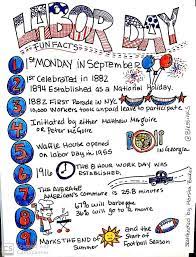 LABOR DAY
FUN FACTS
1 1st MONDAY in SEPTEMBER
2 1st Celebrated in 1882
1894 Established as a National Holiday.
3 1882 First Parade in NYC
10,000 Workers took unpaid leave to participate
4 Initiated by either Matthew Maguire
or Peter McGuire
5 Waffle House opened
on Labor day in 1955
in Georgia
6 1916 THE 8 HOUR WORK DAY WAS
ESTABLISHED.
7 THE AVERAGE
AMERICAN'S commute is 25.8 minutes
8 67% will barbeque
36% will go to
9 Marks THE END OF
Summer and the
Start of
Football Season